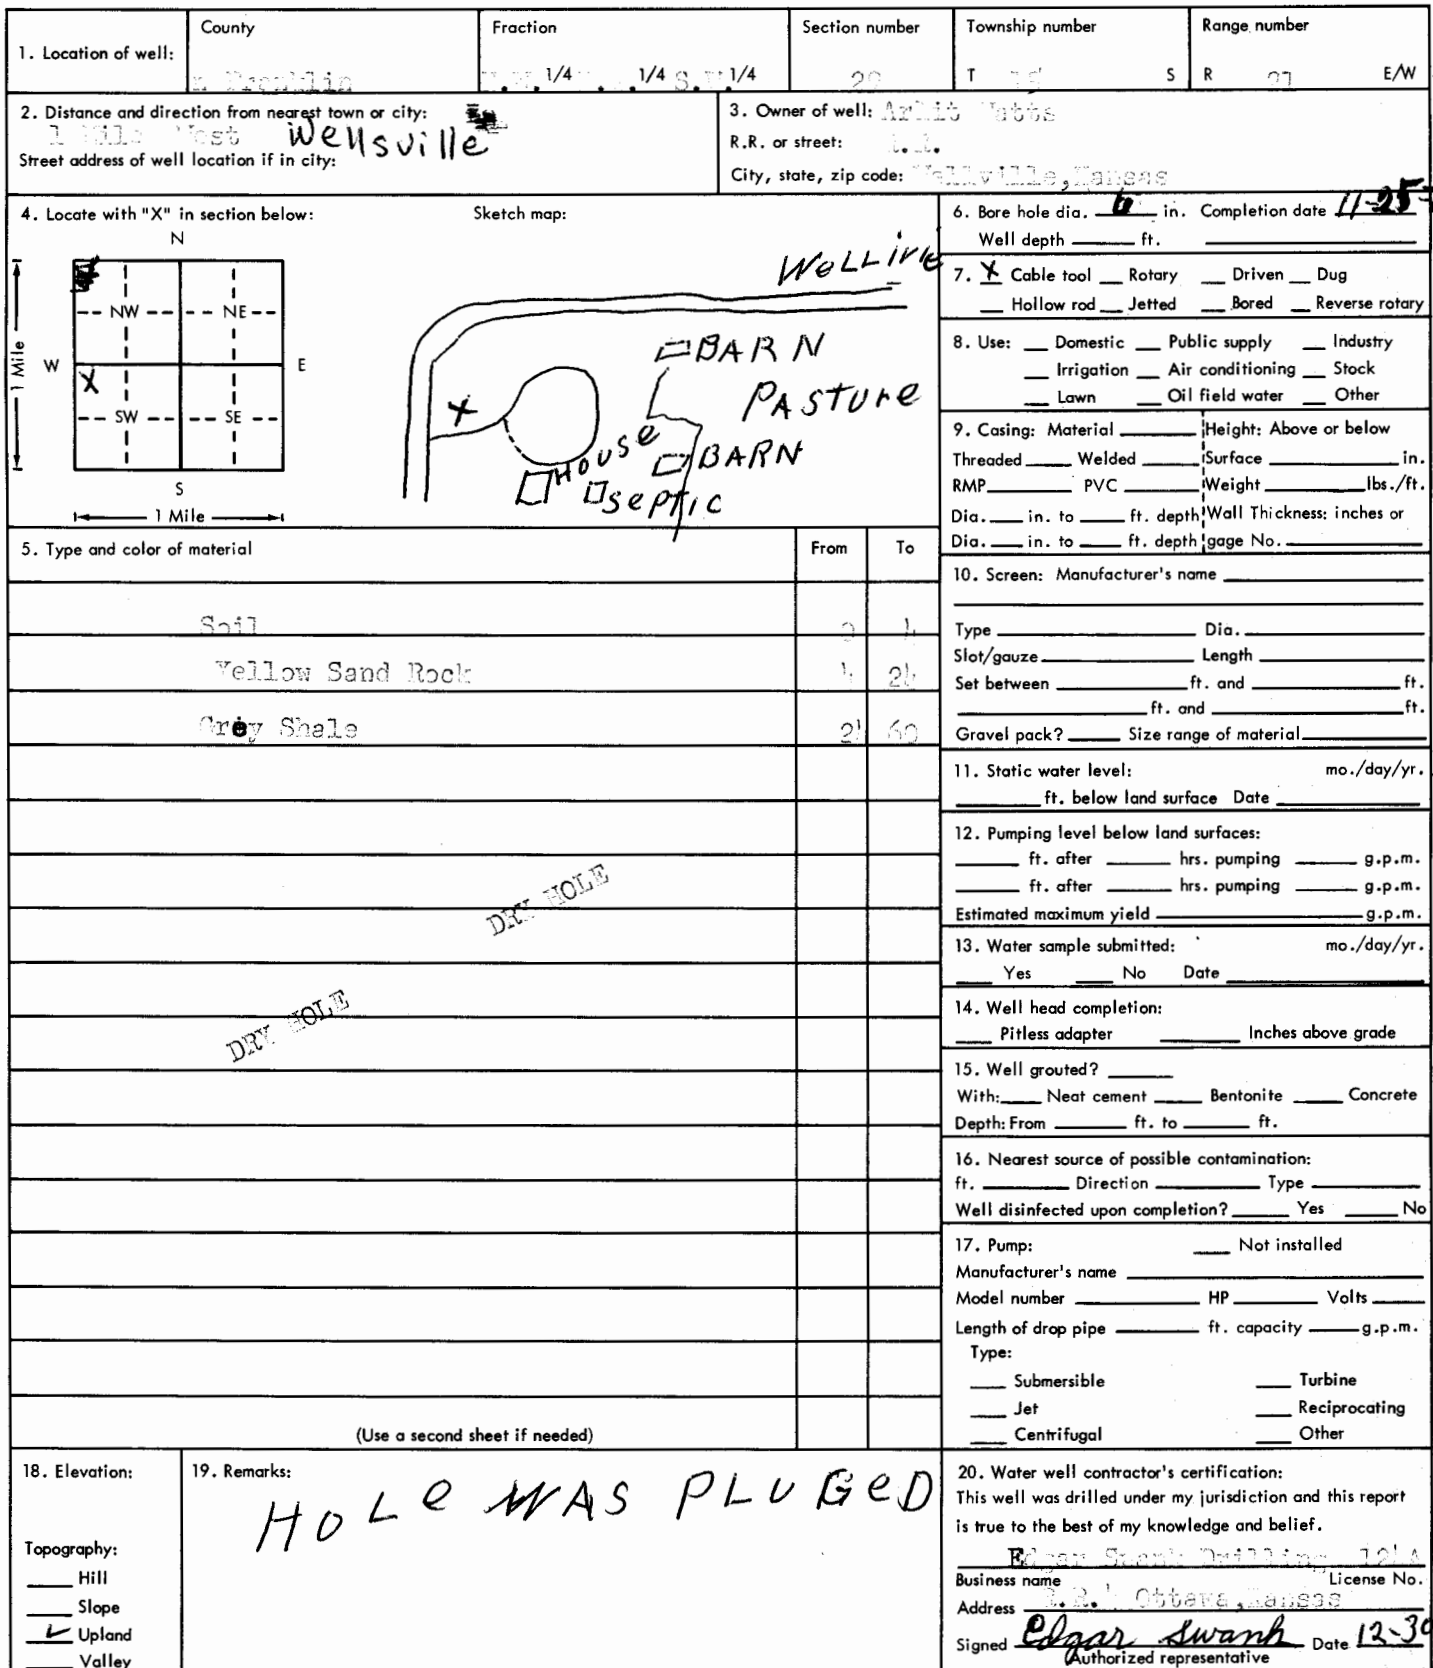 County Fraction Section number Township number Range number
1. Location of well: Franklin 1/4 1/4 S.W 1/4 T S R E/W
2. Distance and direction from nearest town or city:
1 Mile West Wellsville
Street address of well location if in city:
3. Owner of well: Watts
R.R. or street: R.R.
City, state, zip code: Wellville, Kansas
4. Locate with "X" in section below: Sketch map:
N
NW NE
W E
X
SW SE
S
1 Mile
1 Mile
BARN
PASTUre
X
HOUSe
BARN
SePTIC
5. Type and color of material From To
Soil 0 4
Yellow Sand Rock 4 24
Grey Shale 24 60
DRY HOLE
DRY HOLE
(Use a second sheet if needed)
6. Bore hole dia. 6 in. Completion date 11-25-
Well depth ft.
7. X Cable tool Rotary Driven Dug
Hollow rod Jetted Bored Reverse rotary
8. Use: Domestic Public supply Industry
Irrigation Air conditioning Stock
Lawn Oil field water Other
9. Casing: Material Height: Above or below
Threaded Welded Surface in.
RMP PVC Weight lbs./ft.
Dia. in. to ft. depth Wall Thickness: inches or
Dia. in. to ft. depth gage No.
10. Screen: Manufacturer's name
Type Dia.
Slot/gauze Length
Set between ft. and ft.
ft. and ft.
Gravel pack? Size range of material
11. Static water level: mo./day/yr.
ft. below land surface Date
12. Pumping level below land surfaces:
ft. after hrs. pumping g.p.m.
ft. after hrs. pumping g.p.m.
Estimated maximum yield g.p.m.
13. Water sample submitted: mo./day/yr.
Yes No Date
14. Well head completion:
Pitless adapter Inches above grade
15. Well grouted?
With: Neat cement Bentonite Concrete
Depth: From ft. to ft.
16. Nearest source of possible contamination:
ft. Direction Type
Well disinfected upon completion? Yes No
17. Pump: Not installed
Manufacturer's name
Model number HP Volts
Length of drop pipe ft. capacity g.p.m.
Type:
Submersible Turbine
Jet Reciprocating
Centrifugal Other
18. Elevation:
Topography:
Hill
Slope
Upland
Valley
19. Remarks:
HOLe WAS PLUGeD
20. Water well contractor's certification:
This well was drilled under my jurisdiction and this report
is true to the best of my knowledge and belief.
Edgar Swank Drilling
Business name License No.
Address Ottawa, Kansas
Signed Edgar Swank Date 12-30
Authorized representative